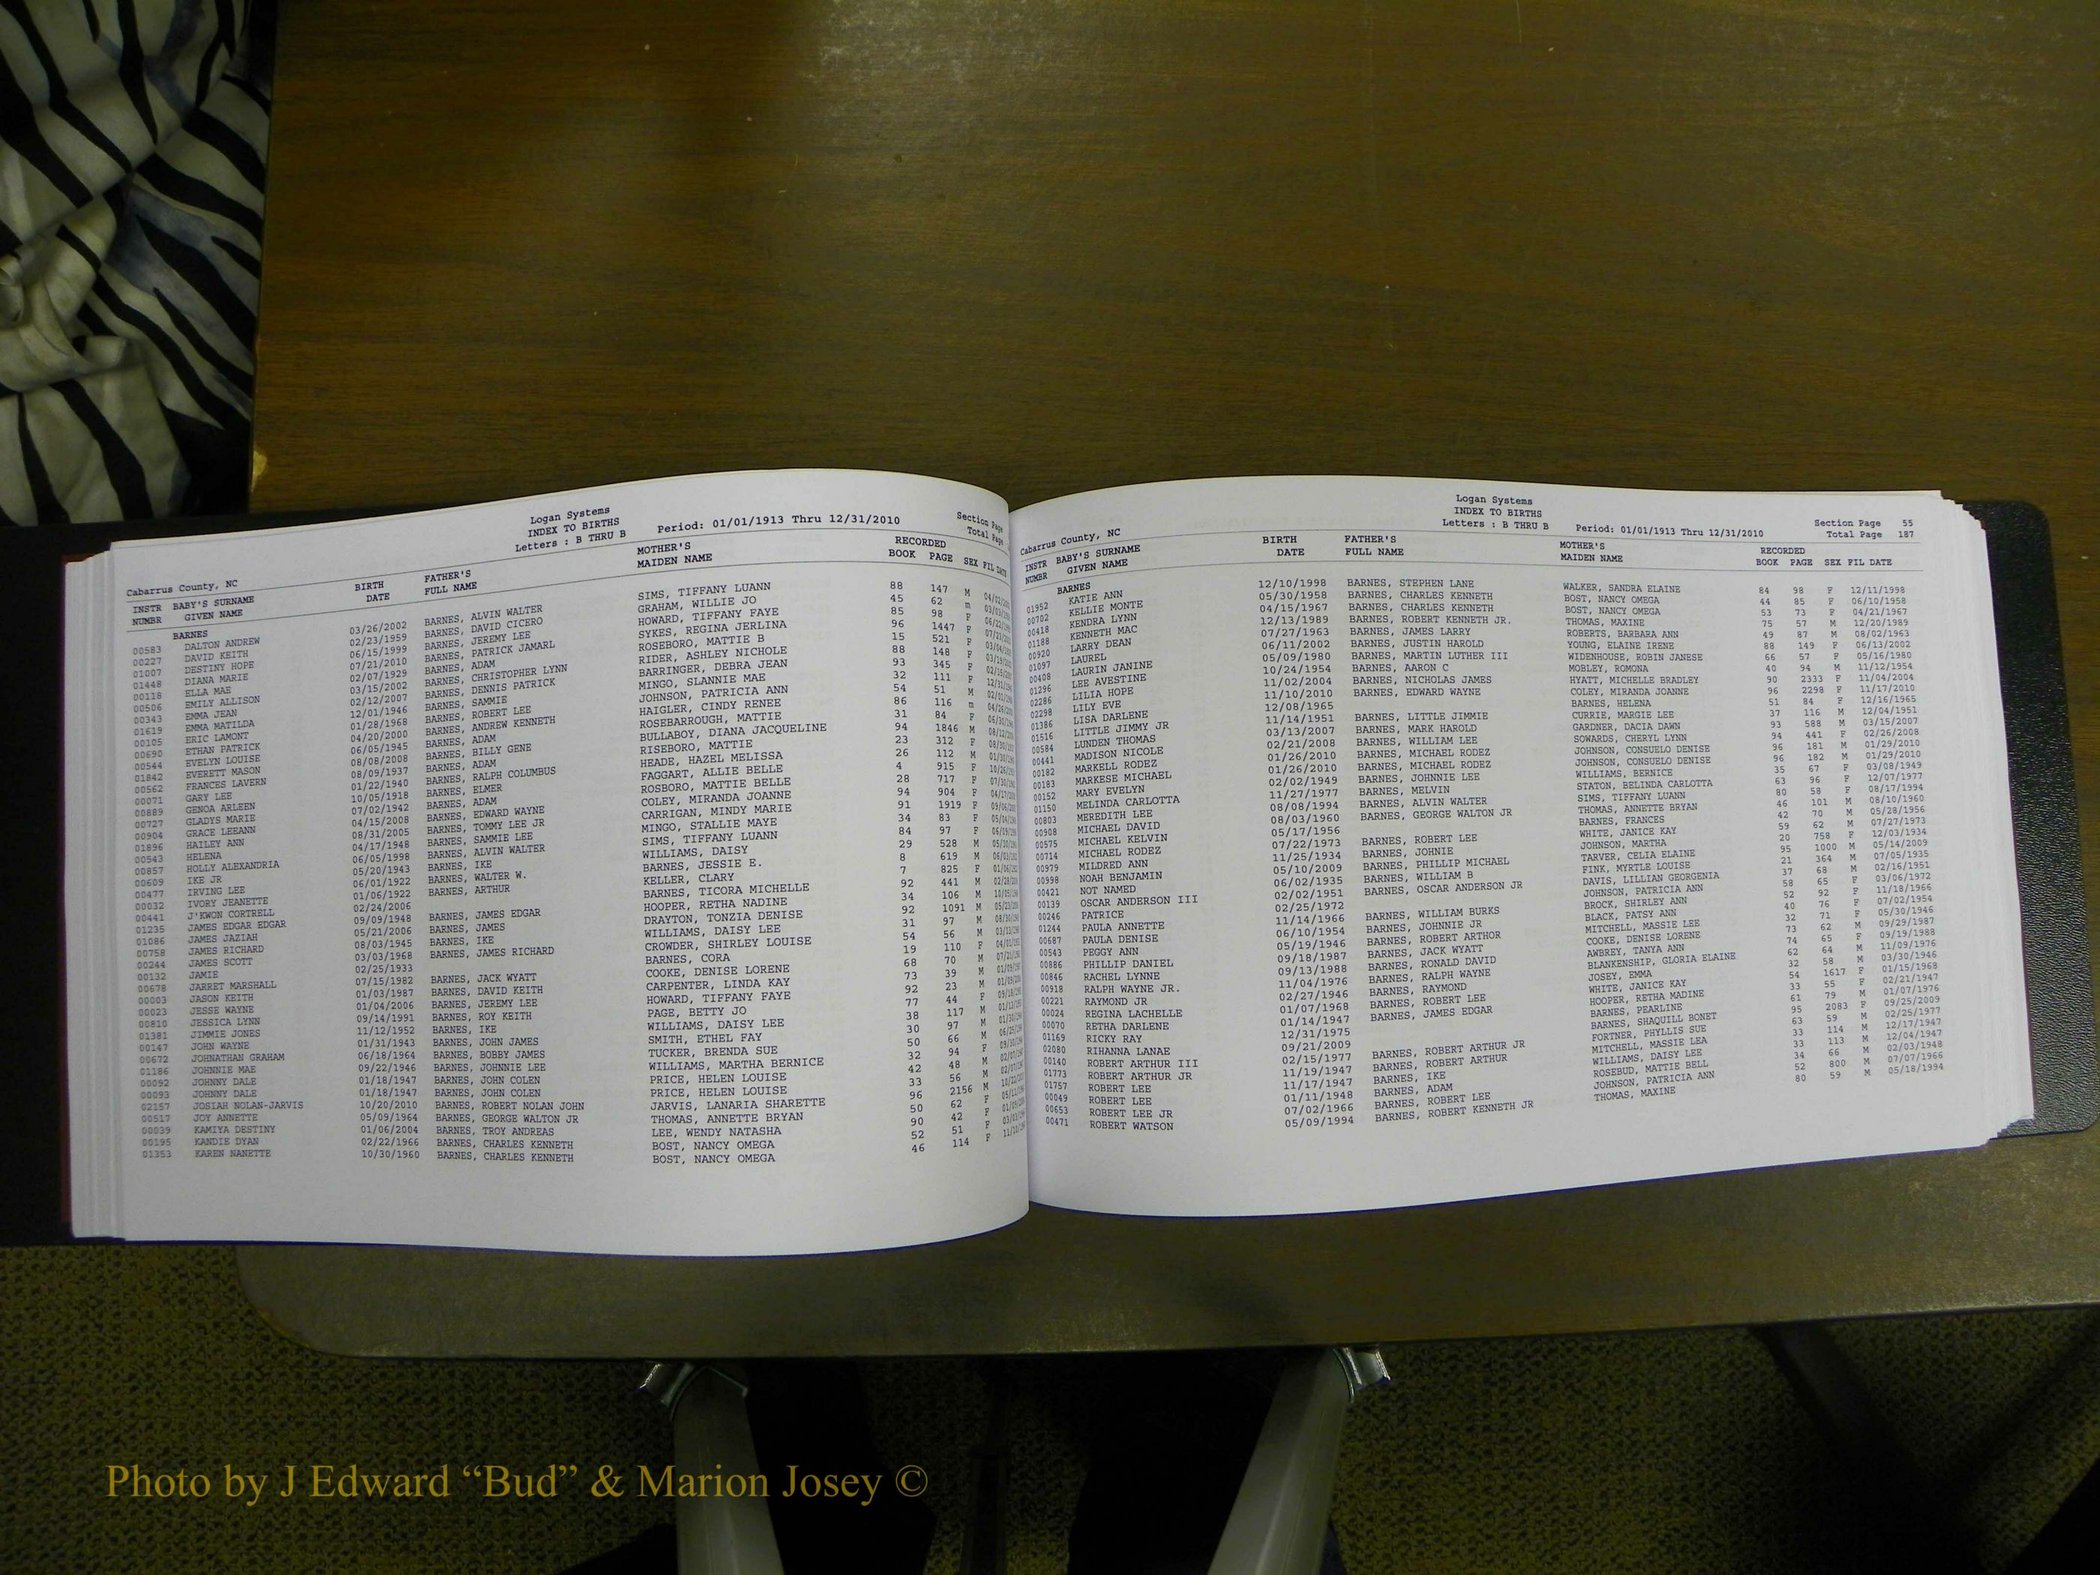 Logan Systems
INDEX TO BIRTHS
Letters : B THRU B Period: 01/01/1913 Thru 12/31/2010
Section Page
Total Page
Cabarrus County, NC
INSTR BABY'S SURNAME BIRTH FATHER'S MOTHER'S RECORDED
NUMBR GIVEN NAME DATE FULL NAME MAIDEN NAME BOOK PAGE SEX FIL DATE
BARNES
00583 DALTON ANDREW 03/26/2002 BARNES, ALVIN WALTER SIMS, TIFFANY LUANN 88 147 M
00227 DAVID KEITH 02/23/1959 BARNES, DAVID CICERO GRAHAM, WILLIE JO 45 62 m
01007 DESTINY HOPE 06/15/1999 BARNES, JEREMY LEE HOWARD, TIFFANY FAYE 85 98 F
01448 DIANA MARIE 07/21/2010 BARNES, PATRICK JAMARL SYKES, REGINA JERLINA 96 1447 F
00118 ELLA MAE 02/07/1929 BARNES, ADAM ROSEBORO, MATTIE B 15 521 F
00506 EMILY ALLISON 03/15/2002 BARNES, CHRISTOPHER LYNN RIDER, ASHLEY NICHOLE 88 148 F
00343 EMMA JEAN 02/12/2007 BARNES, DENNIS PATRICK BARRINGER, DEBRA JEAN 93 345 F
01619 EMMA MATILDA 12/01/1946 BARNES, SAMMIE MINGO, SLANNIE MAE 32 111 F
00105 ERIC LAMONT 01/28/1968 BARNES, ROBERT LEE JOHNSON, PATRICIA ANN 54 51 M
00690 ETHAN PATRICK 04/20/2000 BARNES, ANDREW KENNETH HAIGLER, CINDY RENEE 86 116 m
00544 EVELYN LOUISE 06/05/1945 BARNES, ADAM ROSEBARROUGH, MATTIE 31 84 F
01842 EVERETT MASON 08/08/2008 BARNES, BILLY GENE BULLABOY, DIANA JACQUELINE 94 1846 M
00562 FRANCES LAVERN 08/09/1937 BARNES, ADAM RISEBORO, MATTIE 23 312 F
00071 GARY LEE 01/22/1940 BARNES, RALPH COLUMBUS HEADE, HAZEL MELISSA 26 112 M
00889 GENOA ARLEEN 10/05/1918 BARNES, ELMER FAGGART, ALLIE BELLE 4 915 F
00727 GLADYS MARIE 07/02/1942 BARNES, ADAM ROSBORO, MATTIE BELLE 28 717 F
00904 GRACE LEEANN 04/15/2008 BARNES, EDWARD WAYNE COLEY, MIRANDA JOANNE 94 904 F
01896 HAILEY ANN 08/31/2005 BARNES, TOMMY LEE JR CARRIGAN, MINDY MARIE 91 1919 F
00543 HELENA 04/17/1948 BARNES, SAMMIE LEE MINGO, STALLIE MAYE 34 83 F
00857 HOLLY ALEXANDRIA 06/05/1998 BARNES, ALVIN WALTER SIMS, TIFFANY LUANN 84 97 F
00609 IKE JR 05/20/1943 BARNES, IKE WILLIAMS, DAISY 29 528 M
00477 IRVING LEE 06/01/1922 BARNES, WALTER W. BARNES, JESSIE E. 8 619 M
00032 IVORY JEANETTE 01/06/1922 BARNES, ARTHUR KELLER, CLARY 7 825 F
00441 J'KWON CORTRELL 02/24/2006 BARNES, TICORA MICHELLE 92 441 M
01235 JAMES EDGAR EDGAR 09/09/1948 BARNES, JAMES EDGAR HOOPER, RETHA NADINE 34 106 M
01086 JAMES JAZIAH 05/21/2006 BARNES, JAMES DRAYTON, TONZIA DENISE 92 1091 M
00758 JAMES RICHARD 08/03/1945 BARNES, IKE WILLIAMS, DAISY LEE 31 97 M
00244 JAMES SCOTT 03/03/1968 BARNES, JAMES RICHARD CROWDER, SHIRLEY LOUISE 54 56 M
00132 JAMIE 02/25/1933 BARNES, CORA 19 110 F
00678 JARRET MARSHALL 07/15/1982 BARNES, JACK WYATT COOKE, DENISE LORENE 68 70 M
00003 JASON KEITH 01/03/1987 BARNES, DAVID KEITH CARPENTER, LINDA KAY 73 39 M
00023 JESSE WAYNE 01/04/2006 BARNES, JEREMY LEE HOWARD, TIFFANY FAYE 92 23 M
00810 JESSICA LYNN 09/14/1991 BARNES, ROY KEITH PAGE, BETTY JO 77 44 F
01381 JIMMIE JONES 11/12/1952 BARNES, IKE WILLIAMS, DAISY LEE 38 117 M
00147 JOHN WAYNE 01/31/1943 BARNES, JOHN JAMES SMITH, ETHEL FAY 30 97 M
00672 JOHNATHAN GRAHAM 06/18/1964 BARNES, BOBBY JAMES TUCKER, BRENDA SUE 50 66 M
01186 JOHNNIE MAE 09/22/1946 BARNES, JOHNNIE LEE WILLIAMS, MARTHA BERNICE 32 94 F
00092 JOHNNY DALE 01/18/1947 BARNES, JOHN COLEN PRICE, HELEN LOUISE 42 48 M
00093 JOHNNY DALE 01/18/1947 BARNES, JOHN COLEN PRICE, HELEN LOUISE 33 56 M
02157 JOSIAH NOLAN-JARVIS 10/20/2010 BARNES, ROBERT NOLAN JOHN JARVIS, LANARIA SHARETTE 96 2156 M
00517 JOY ANNETTE 05/09/1964 BARNES, GEORGE WALTON JR THOMAS, ANNETTE BRYAN 50 62 F
00039 KAMIYA DESTINY 01/06/2004 BARNES, TROY ANDREAS LEE, WENDY NATASHA 90 42 F
00195 KANDIE DYAN 02/22/1966 BARNES, CHARLES KENNETH BOST, NANCY OMEGA 52 51 F
01353 KAREN NANETTE 10/30/1960 BARNES, CHARLES KENNETH BOST, NANCY OMEGA 46 114 F
Logan Systems
INDEX TO BIRTHS
Letters : B THRU B Period: 01/01/1913 Thru 12/31/2010
Section Page 55
Total Page 187
Cabarrus County, NC
INSTR BABY'S SURNAME BIRTH FATHER'S MOTHER'S RECORDED
NUMBR GIVEN NAME DATE FULL NAME MAIDEN NAME BOOK PAGE SEX FIL DATE
BARNES
01952 KATIE ANN 12/10/1998 BARNES, STEPHEN LANE WALKER, SANDRA ELAINE 84 98 F 12/11/1998
00702 KELLIE MONTE 05/30/1958 BARNES, CHARLES KENNETH BOST, NANCY OMEGA 44 85 F 06/10/1958
00418 KENDRA LYNN 04/15/1967 BARNES, CHARLES KENNETH BOST, NANCY OMEGA 53 73 F 04/21/1967
01188 KENNETH MAC 12/13/1989 BARNES, ROBERT KENNETH JR. THOMAS, MAXINE 75 57 M 12/20/1989
00920 LARRY DEAN 07/27/1963 BARNES, JAMES LARRY ROBERTS, BARBARA ANN 49 87 M 08/02/1963
01097 LAUREL 06/11/2002 BARNES, JUSTIN HAROLD YOUNG, ELAINE IRENE 88 149 F 06/13/2002
00408 LAURIN JANINE 05/09/1980 BARNES, MARTIN LUTHER III WIDENHOUSE, ROBIN JANESE 66 57 F 05/16/1980
01296 LEE AVESTINE 10/24/1954 BARNES, AARON C MOBLEY, ROMONA 40 94 M 11/12/1954
02286 LILIA HOPE 11/02/2004 BARNES, NICHOLAS JAMES HYATT, MICHELLE BRADLEY 90 2333 F 11/04/2004
02298 LILY EVE 11/10/2010 BARNES, EDWARD WAYNE COLEY, MIRANDA JOANNE 96 2298 F 11/17/2010
01386 LISA DARLENE 12/08/1965 BARNES, HELENA 51 84 F 12/16/1965
01516 LITTLE JIMMY JR 11/14/1951 BARNES, LITTLE JIMMIE CURRIE, MARGIE LEE 37 116 M 12/04/1951
00584 LUNDEN THOMAS 03/13/2007 BARNES, MARK HAROLD GARDNER, DACIA DAWN 93 588 M 03/15/2007
00441 MADISON NICOLE 02/21/2008 BARNES, WILLIAM LEE SOWARDS, CHERYL LYNN 94 441 F 02/26/2008
00182 MARKELL RODEZ 01/26/2010 BARNES, MICHAEL RODEZ JOHNSON, CONSUELO DENISE 96 181 M 01/29/2010
00183 MARKESE MICHAEL 01/26/2010 BARNES, MICHAEL RODEZ JOHNSON, CONSUELO DENISE 96 182 M 01/29/2010
00152 MARY EVELYN 02/02/1949 BARNES, JOHNNIE LEE WILLIAMS, BERNICE 35 67 F 03/08/1949
01150 MELINDA CARLOTTA 11/27/1977 BARNES, MELVIN STATON, BELINDA CARLOTTA 63 96 F 12/07/1977
00803 MEREDITH LEE 08/08/1994 BARNES, ALVIN WALTER SIMS, TIFFANY LUANN 80 58 F 08/17/1994
00908 MICHAEL DAVID 08/03/1960 BARNES, GEORGE WALTON JR THOMAS, ANNETTE BRYAN 46 101 M 08/10/1960
00575 MICHAEL KELVIN 05/17/1956 BARNES, FRANCES 42 70 M 05/28/1956
00714 MICHAEL RODEZ 07/22/1973 BARNES, ROBERT LEE WHITE, JANICE KAY 59 62 M 07/27/1973
00979 MILDRED ANN 11/25/1934 BARNES, JOHNIE JOHNSON, MARTHA 20 758 F 12/03/1934
00998 NOAH BENJAMIN 05/10/2009 BARNES, PHILLIP MICHAEL TARVER, CELIA ELAINE 95 1000 M 05/14/2009
00421 NOT NAMED 06/02/1935 BARNES, WILLIAM B FINK, MYRTLE LOUISE 21 364 M 07/05/1935
00139 OSCAR ANDERSON III 02/02/1951 BARNES, OSCAR ANDERSON JR DAVIS, LILLIAN GEORGENIA 37 68 M 02/16/1951
00246 PATRICE 02/25/1972 JOHNSON, PATRICIA ANN 58 65 F 03/06/1972
01244 PAULA ANNETTE 11/14/1966 BARNES, WILLIAM BURKS BROCK, SHIRLEY ANN 52 92 F 11/18/1966
00687 PAULA DENISE 06/10/1954 BARNES, JOHNNIE JR BLACK, PATSY ANN 40 76 F 07/02/1954
00543 PEGGY ANN 05/19/1946 BARNES, ROBERT ARTHOR MITCHELL, MASSIE LEE 32 71 F 05/30/1946
00886 PHILLIP DANIEL 09/18/1987 BARNES, JACK WYATT COOKE, DENISE LORENE 73 62 M 09/29/1987
00846 RACHEL LYNNE 09/13/1988 BARNES, RONALD DAVID AWBREY, TANYA ANN 74 65 F 09/19/1988
00918 RALPH WAYNE JR. 11/04/1976 BARNES, RALPH WAYNE BLANKENSHIP, GLORIA ELAINE 62 64 M 11/09/1976
00221 RAYMOND JR 02/27/1946 BARNES, RAYMOND JOSEY, EMMA 32 58 M 03/30/1946
00024 REGINA LACHELLE 01/07/1968 BARNES, ROBERT LEE WHITE, JANICE KAY 54 1617 F 01/15/1968
00070 RETHA DARLENE 01/14/1947 BARNES, JAMES EDGAR HOOPER, RETHA MADINE 33 55 F 02/21/1947
01169 RICKY RAY 12/31/1975 BARNES, PEARLINE 61 79 M 01/07/1976
02080 RIHANNA LANAE 09/21/2009 BARNES, SHAQUILL BONET 95 2083 F 09/25/2009
00140 ROBERT ARTHUR III 02/15/1977 BARNES, ROBERT ARTHUR JR FORTNER, PHYLLIS SUE 63 59 M 02/25/1977
01773 ROBERT ARTHUR JR 11/19/1947 BARNES, ROBERT ARTHUR MITCHELL, MASSIE LEA 33 114 M 12/17/1947
01757 ROBERT LEE 11/17/1947 BARNES, IKE WILLIAMS, DAISY LEE 33 113 M 12/04/1947
00049 ROBERT LEE 01/11/1948 BARNES, ADAM ROSEBUD, MATTIE BELL 34 66 M 02/03/1948
00653 ROBERT LEE JR 07/02/1966 BARNES, ROBERT LEE JOHNSON, PATRICIA ANN 52 800 M 07/07/1966
00471 ROBERT WATSON 05/09/1994 BARNES, ROBERT KENNETH JR THOMAS, MAXINE 80 59 M 05/18/1994
Photo by J Edward “Bud” & Marion Josey ©